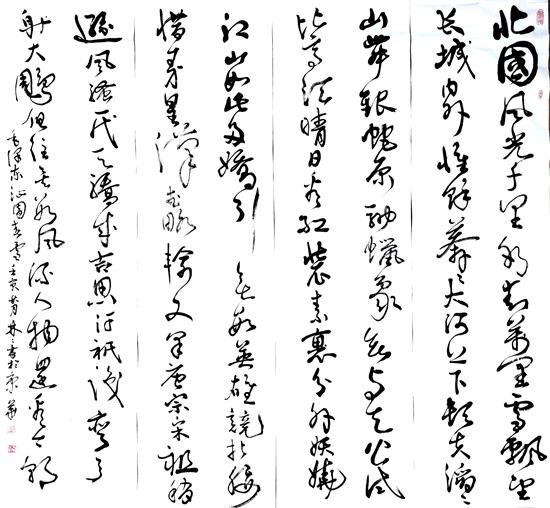 北國風光千里冰封萬里雪飄望
长城内外惟餘莽々大河上下顿失滔々
山舞银蛇原驰蜡象欲与天公试
比高须晴日看红装素裹分外妖娆
江山如此多嬌引無數英雄競折腰
惜秦皇漢武略输文采唐宗宋祖稍
遜風骚一代天骄成吉思汗祇识弯弓
射大雕俱往矣数風流人物還看今朝
毛泽东沁园春雪